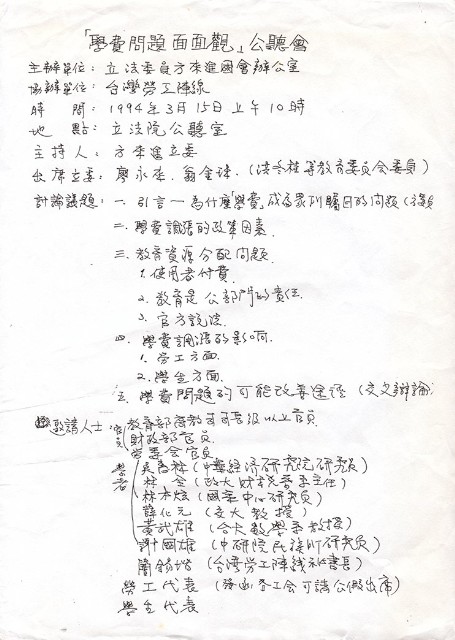 「學費問題面面觀」公聽會
主辦單位：立法委員方來進國會辦公室
協辦單位：台灣勞工陣線
時　間：1994年3月15日上午10時
地　點：立法院公聽室
主持人：方來進立委
出席立委：廖永來、翁金珠、(洪冬桂等教育委員會委員)
討論議題：一. 引言—為什麼「學費」成為眾所矚目的問題(方委員
二. 學費調漲的政策因素
三. 教育資源分配問題
1. 使用者付費
2. 教育是公部門的責任
3. 官方說法
四. 學費調漲的影响
1. 勞工方面
2. 學生方面
五. 學費問題的可能改善途徑(交叉辯論)
邀請人士：官員 教育部高教司司長級以上官員
財政部官員
勞委會官員
學者 吳惠林(中華經濟研究院研究員)
林全(政大財稅系系主任)
林本炫(國策中心研究員)
薛化元(交大教授)
黃武雄(台大數學系教授)
謝國雄(中研院民族所研究員)
簡錫堦(台灣勞工陣線秘書長)
勞工代表(發函各工會可請公假出席)
學生代表